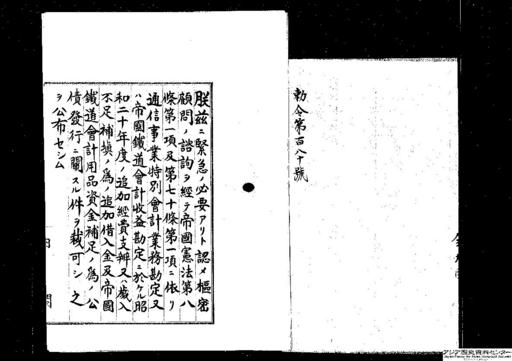 勅令第百八十號
朕茲ニ緊急ノ必要アリト認メ樞密
顧問ノ諮詢ヲ經テ帝國憲法第八
條第一項及第七十條第一項ニ依リ
通信事業特別會計業務勘定又
ハ帝國鐵道會計收益勘定ニ於ケル昭
和二十年度ノ追加經費支辨又ハ歲入
不足補塡ノ爲ノ追加借入金及帝國
鐵道會計用品資金補足ノ爲ノ公
債發行ニ關スル件ヲ裁可シ之
ヲ公布セシム
内 閣
アジア歴史資料センター